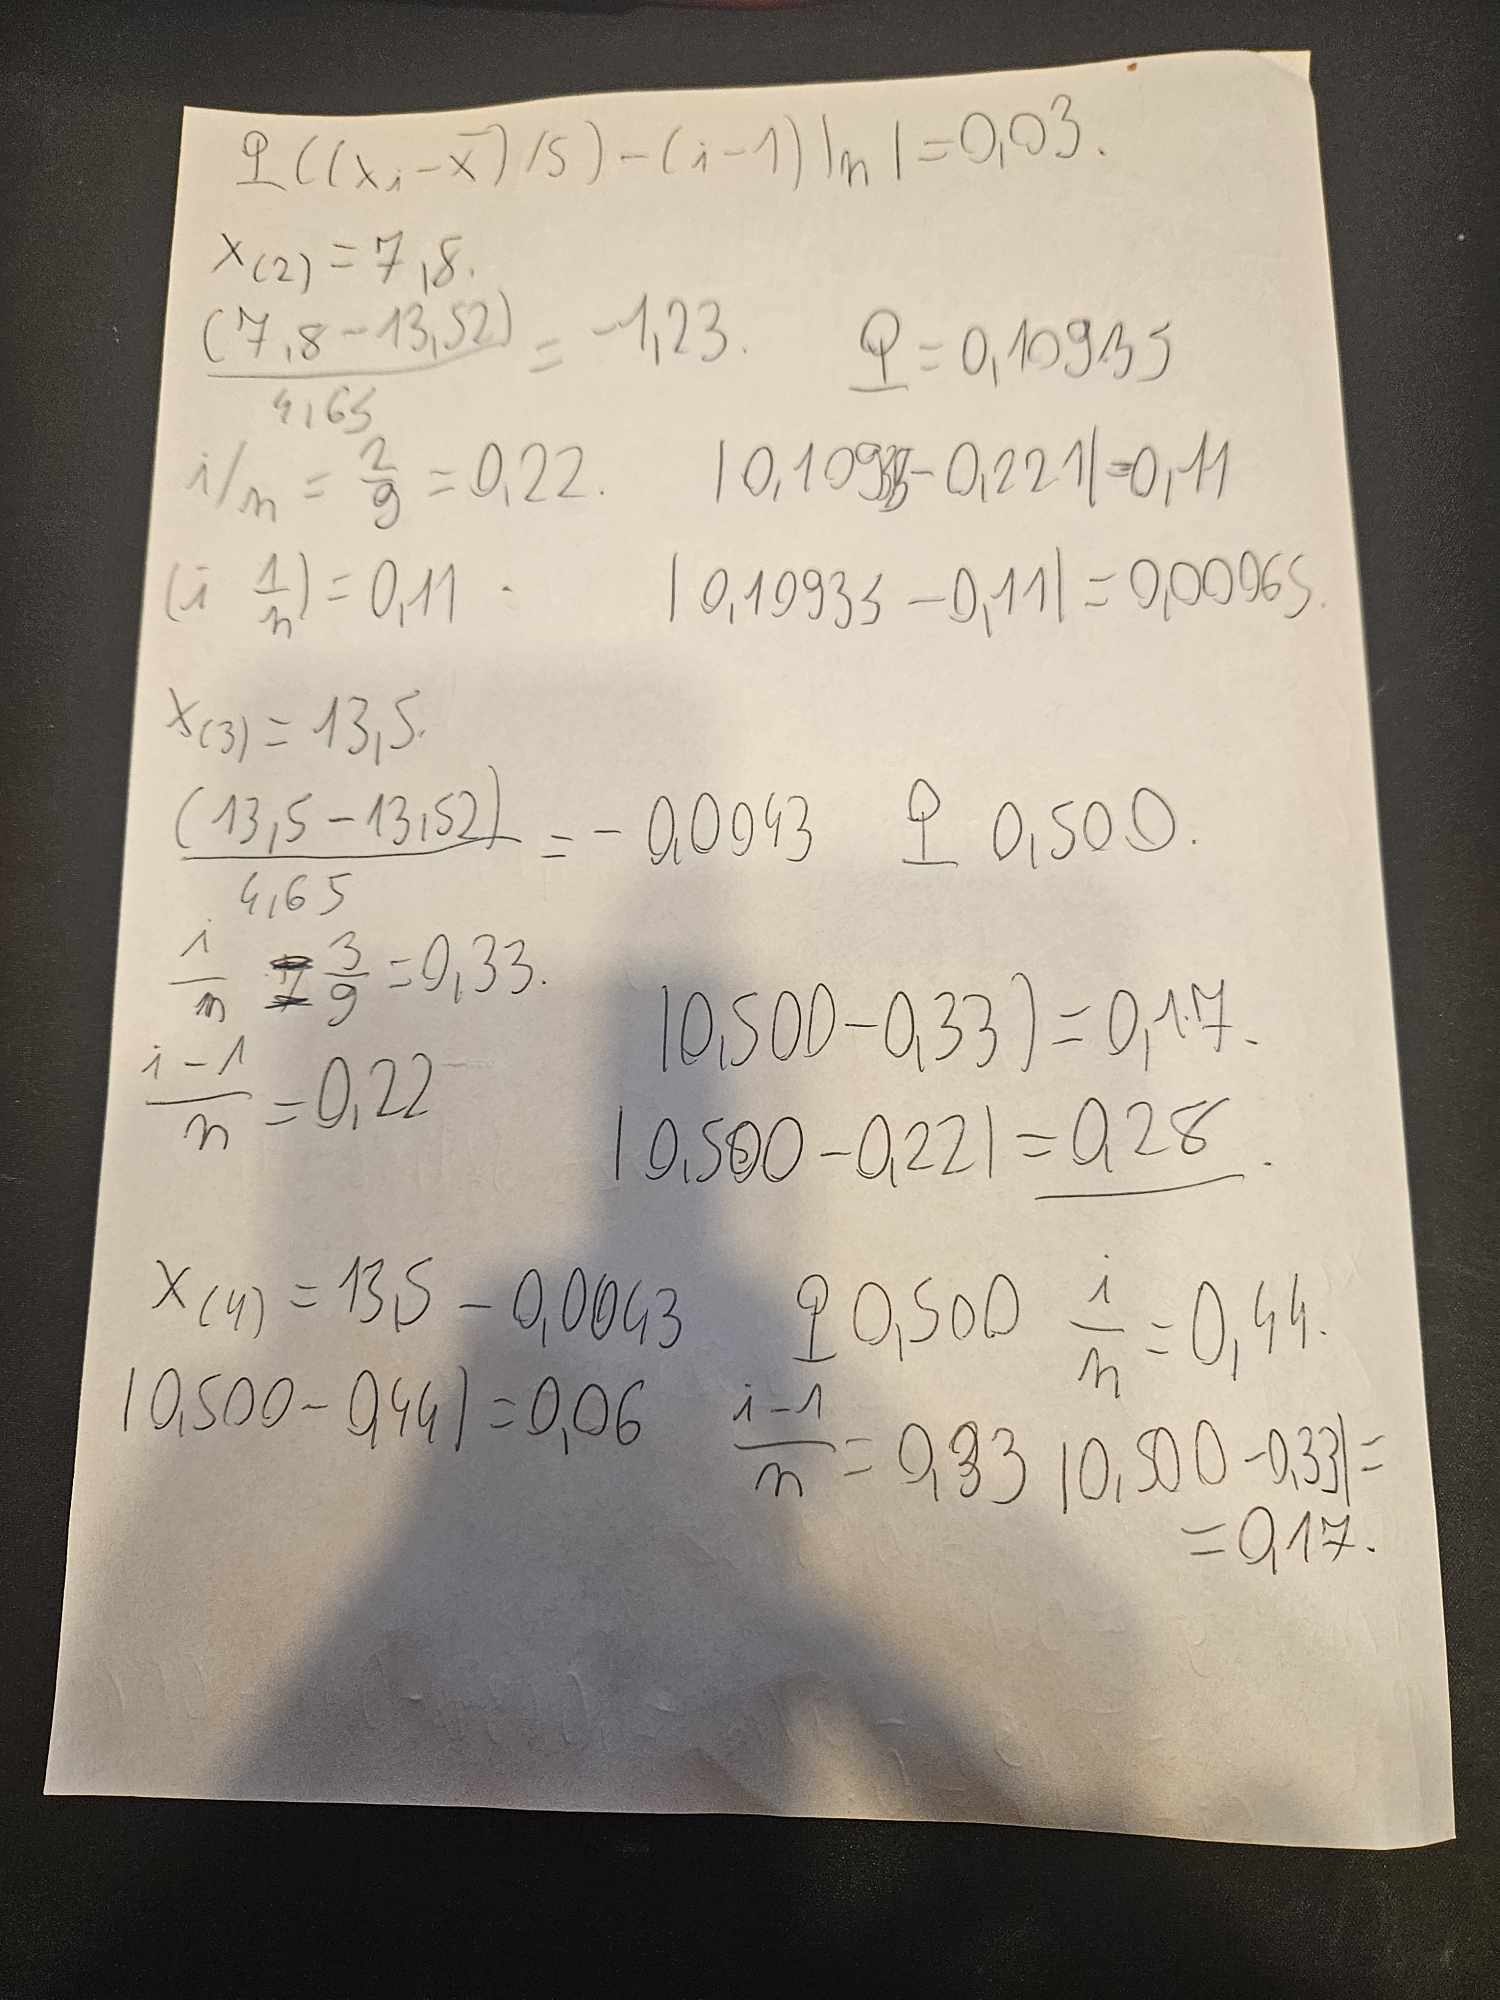 Φ((xi-x̄)/S)-(i-1)|n|=0,03.
x(2)=7,8.
(7,8-13,52)/4,65 = -1,23. Φ=0,10935
i/n = 2/9 = 0,22. |0,10935-0,221|=0,11
(i 1/n)=0,11 |0,10935-0,11|=0,00065.
x(3)=13,5.
(13,5-13,52)/4,65 = -0,0043 Φ 0,500.
i/n = 3/9 = 0,33.
|0,500-0,33)=0,17.
i-1/n = 0,22
|0,500-0,22|=0,28.
x(4)=13,5-0,0043 Φ 0,500 i/n = 0,44.
|0,500-0,44|=0,06 i-1/n = 0,33 |0,500-0,33|=
=0,17.